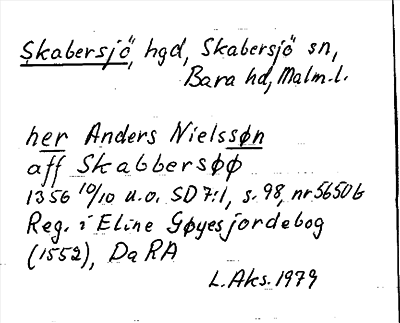 Skabersjö, hgd, Skabersjö sn,
Bara hd, Malm.l.
her Anders Nielssøn
aff Skabbersøø
1356 10/10 u.o. SD 7:1, s. 98, nr 5650b
Reg. i Eline Gøyes jordebog
(1552), DaRA
L.Aks. 1979